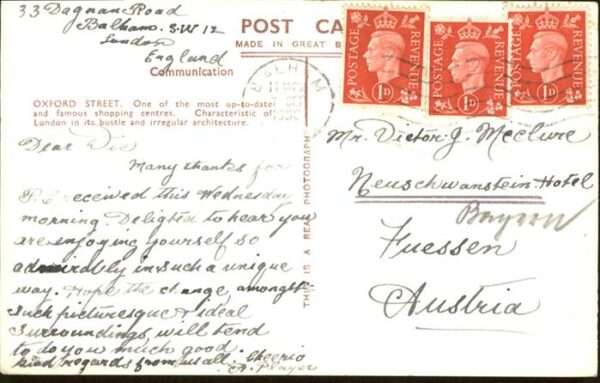 33 Dagnan Road
Balham. S.W 12
London
England
POST CA
MADE IN GREAT B
Communication
OXFORD STREET. One of the most up-to-date
and famous shopping centres. Characteristic of
London in its bustle and irregular architecture.
THIS IS A REAL PHOTOGRAPH
BALHAM
POSTAGE REVENUE 1D
POSTAGE REVENUE 1D
POSTAGE REVENUE 1D
Dear Vic
Many thanks for
P.C received this Wednesday
morning. Delighted to hear you
are enjoying yourself so
admirably in such a unique
way. Hope the change amongst
such picturesque & ideal
surroundings, will tend
to do you much good.
kind regards from us all. Cheerio
Player
Mr. Victor J. McClure
Neuschwanstein Hotel
Bayern
Fuessen
Austria